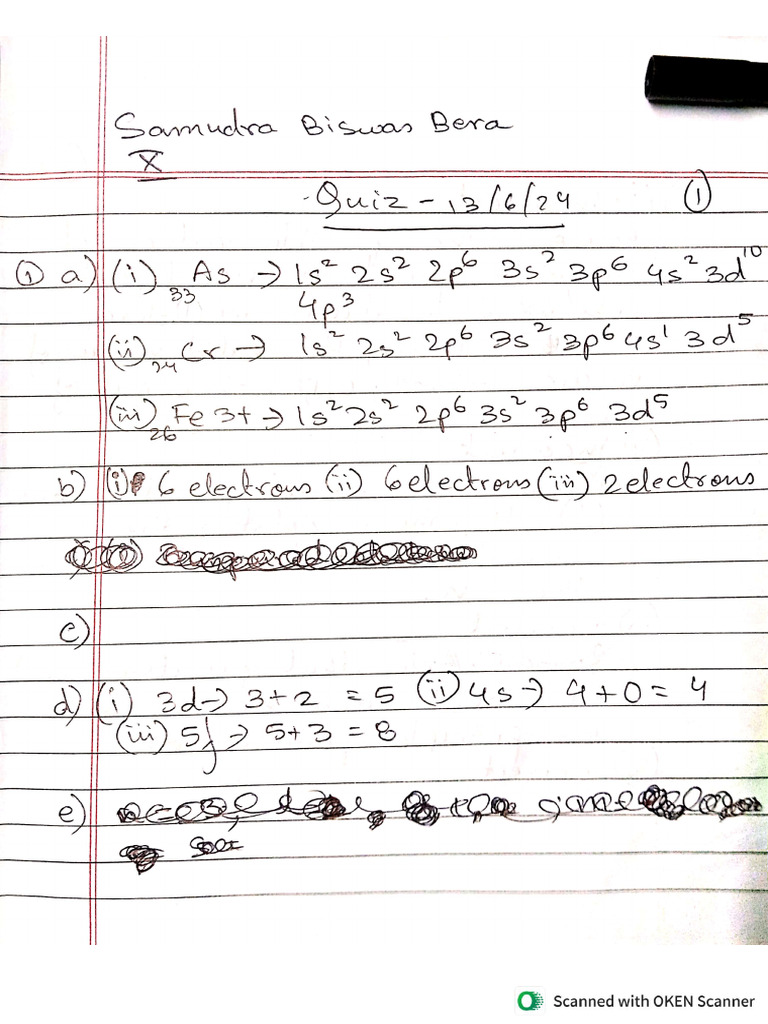 Samudra Biswas Bera
X
Quiz - 13/6/24 ①
① a) (i) ₃₃As → 1s² 2s² 2p⁶ 3s² 3p⁶ 4s² 3d¹⁰
4p³
(ii) ₂₄Cr → 1s² 2s² 2p⁶ 3s² 3p⁶ 4s¹ 3d⁵
(iii) ₂₆Fe 3+ → 1s² 2s² 2p⁶ 3s² 3p⁶ 3d⁵
b) (i) 6 electrons (ii) 6 electrons (iii) 2 electrons
c)
d) (i) 3d → 3+2 = 5 (ii) 4s → 4+0 = 4
(iii) 5f → 5+3 = 8
e)
Scanned with OKEN Scanner